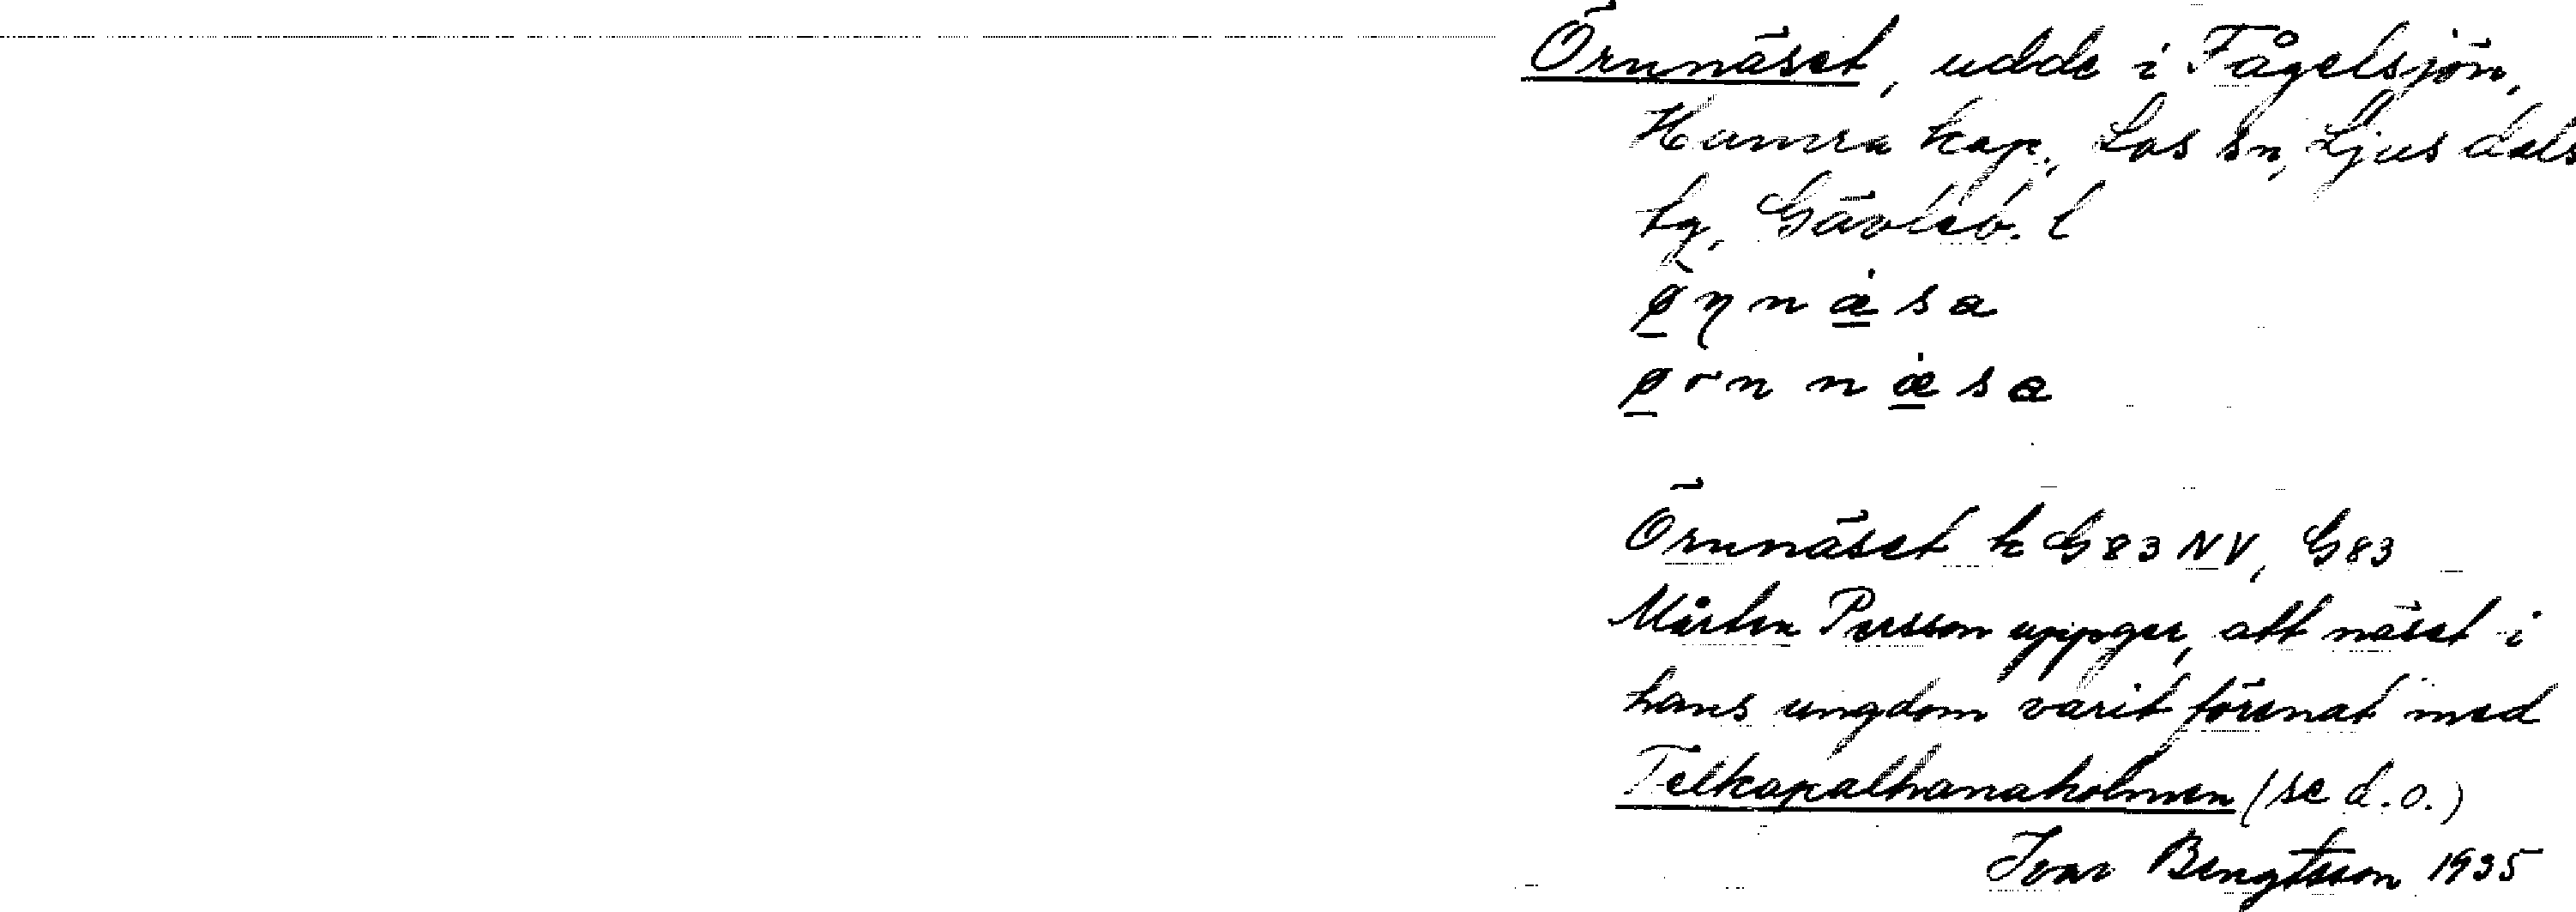 Örnnäset, udde i Fågelsjön,
Hamra kap., Los sn, Ljusdals
tg, Gävleb. l
Örnnäset k G83 NV, G83
Mårten Persson uppger, att näset i
hans ungdom varit förenat med
(se d.o.)
Ivar Bengtsson 1935